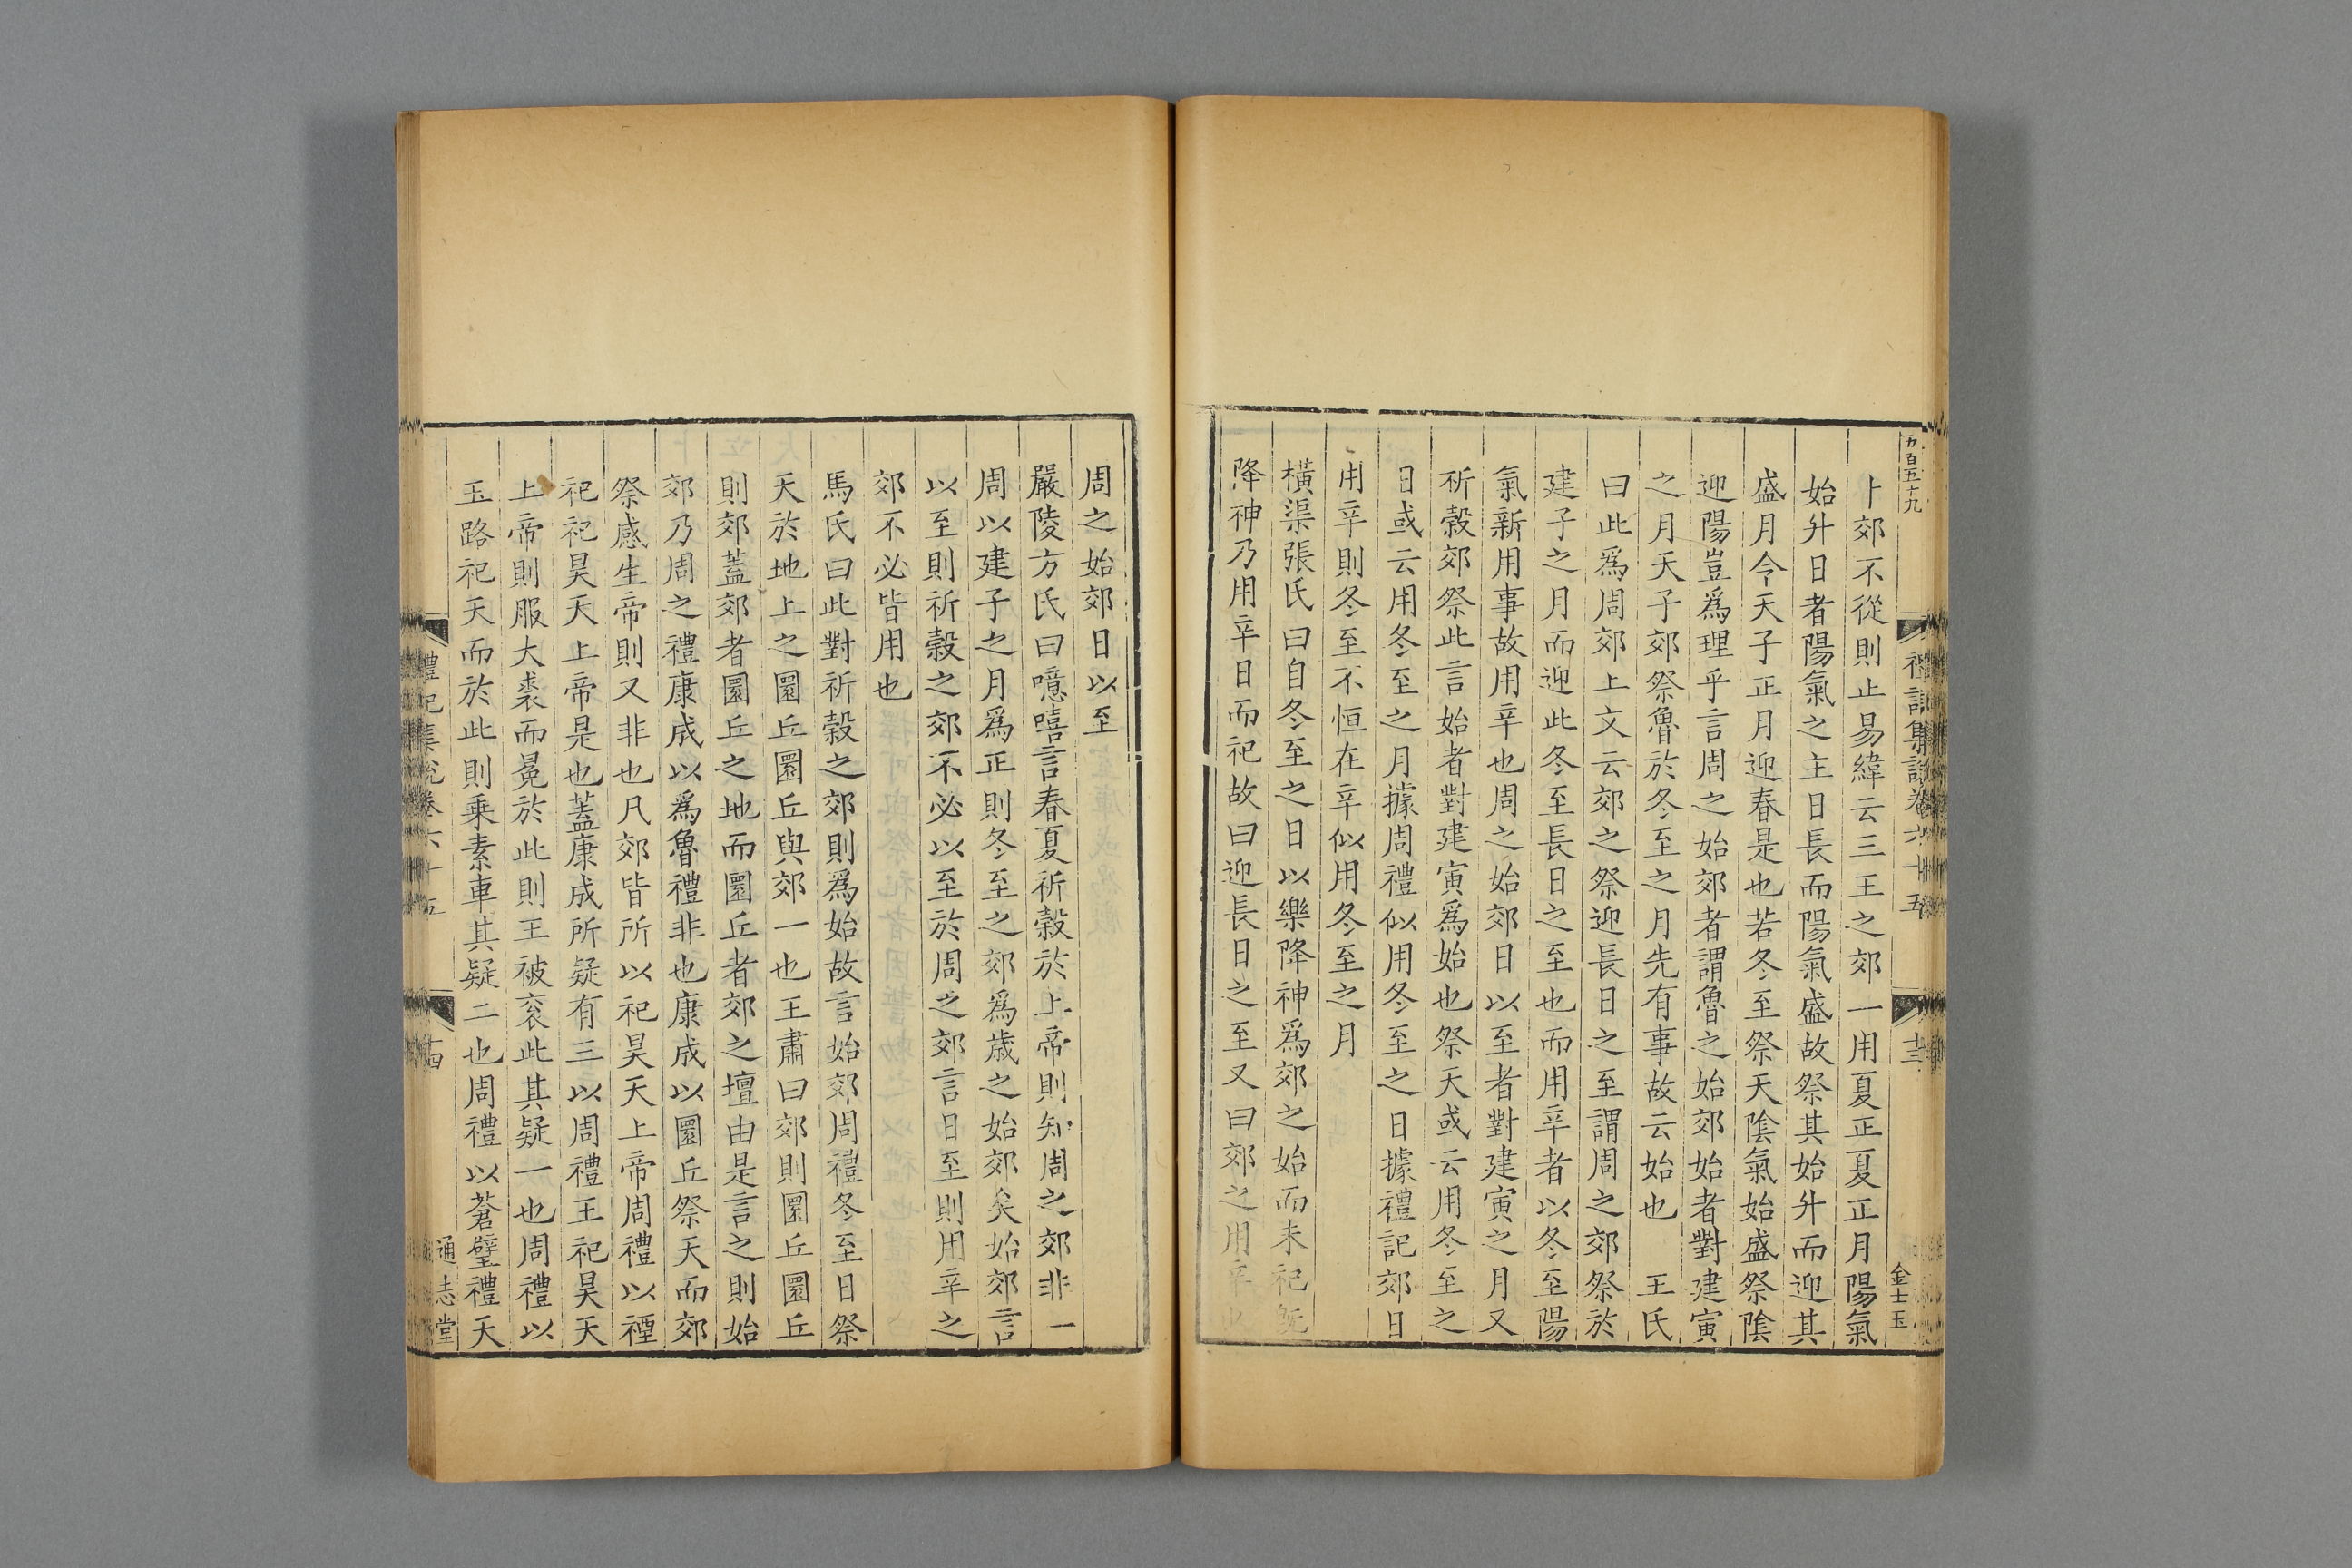 九百五十九
禮記集說卷六十五
十三
金士玉
卜郊不從則止易緯云三王之郊一用夏正夏正月陽氣
始升日者陽氣之主日長而陽氣盛故祭其始升而迎其
盛月令天子正月迎春是也若冬至祭天陰氣始盛祭陰
迎陽豈爲理乎言周之始郊者謂魯之始郊始者對建寅
之月天子郊祭魯於冬至之月先有事故云始也 王氏
曰此爲周郊上文云郊之祭迎長日之至謂周之郊祭於
建子之月而迎此冬至長日之至也而用辛者以冬至陽
氣新用事故用辛也周之始郊日以至者對建寅之月又
祈穀郊祭此言始者對建寅爲始也祭天或云用冬至之
日或云用冬至之月據周禮似用冬至之日據禮記郊日
用辛則冬至不恒在辛似用冬至之月
橫渠張氏曰自冬至之日以樂降神爲郊之始而未祀旣
降神乃用辛日而祀故曰迎長日之至又曰郊之用辛也
周之始郊日以至
嚴陵方氏曰噫嘻言春夏祈穀於上帝則知周之郊非一
周以建子之月爲正則冬至之郊爲歲之始郊矣始郊言
以至則祈穀之郊不必以至於周之郊言日至則用辛之
郊不必皆用也
馬氏曰此對祈穀之郊則爲始故言始郊周禮冬至日祭
天於地上之圜丘圜丘與郊一也王肅曰郊則圜丘圜丘
則郊蓋郊者圜丘之地而圜丘者郊之壇由是言之則始
郊乃周之禮康成以爲魯禮非也康成以圜丘祭天而郊
祭感生帝則又非也凡郊皆所以祀昊天上帝周禮以禋
祀祀昊天上帝是也蓋康成所疑有三以周禮王祀昊天
上帝則服大裘而冕於此則王被衮此其疑一也周禮以
玉路祀天而於此則乘素車其疑二也周禮以蒼璧禮天
禮記集說卷六十五
十四
通志堂